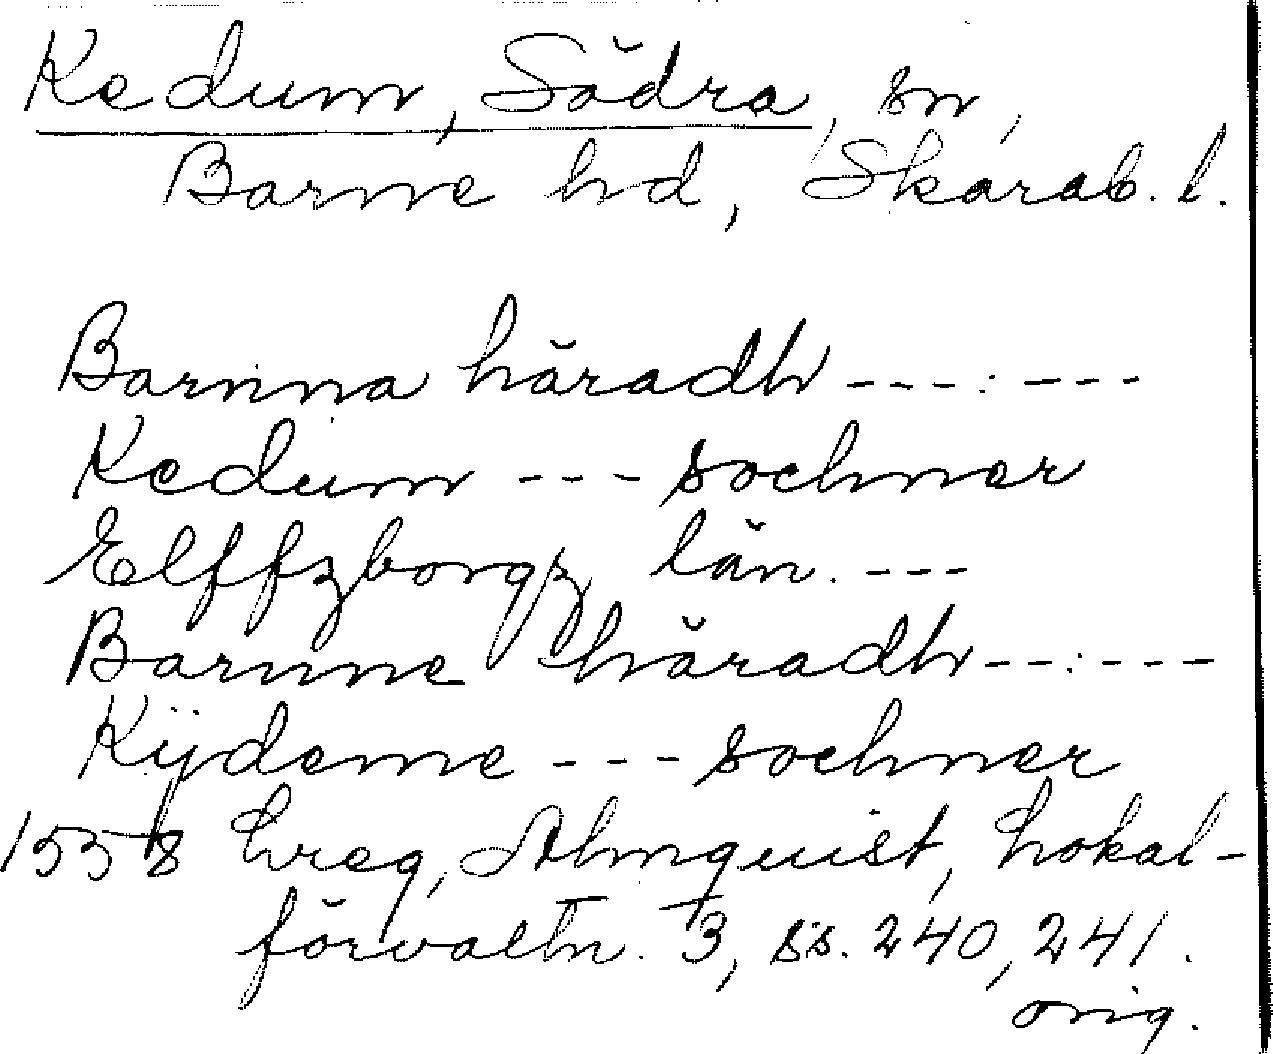 Kedum, Södra, sn,
Barne hd, Skarab. l.
Barnna häradh ---:---
Kedum --- sochner
Elffzborgz län. ---
Barnne häradh --:---
Kÿdeme --- sochner
1558 Lreg, Almquist, Lokal-
förvaltn. 3, ss. 240, 241.
orig.